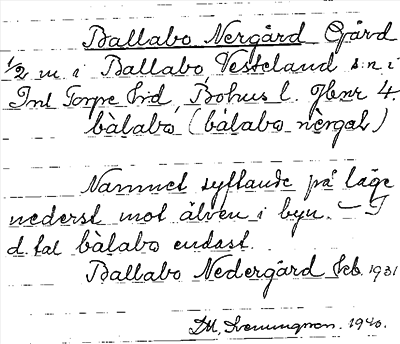 Ballabo Nergård Gård
1/2 m. i Ballabo, Västeland s.n.i
Inl Torpe hd, Bohus l. Jbnr 4.
bàlabo (bàlabo nèrgaḷ)
Namnet syftande på läge
nederst mot älven i byn. — I
d. tal bàlabo endast.
Ballabo Nedergård Jeb. 1931
1940.